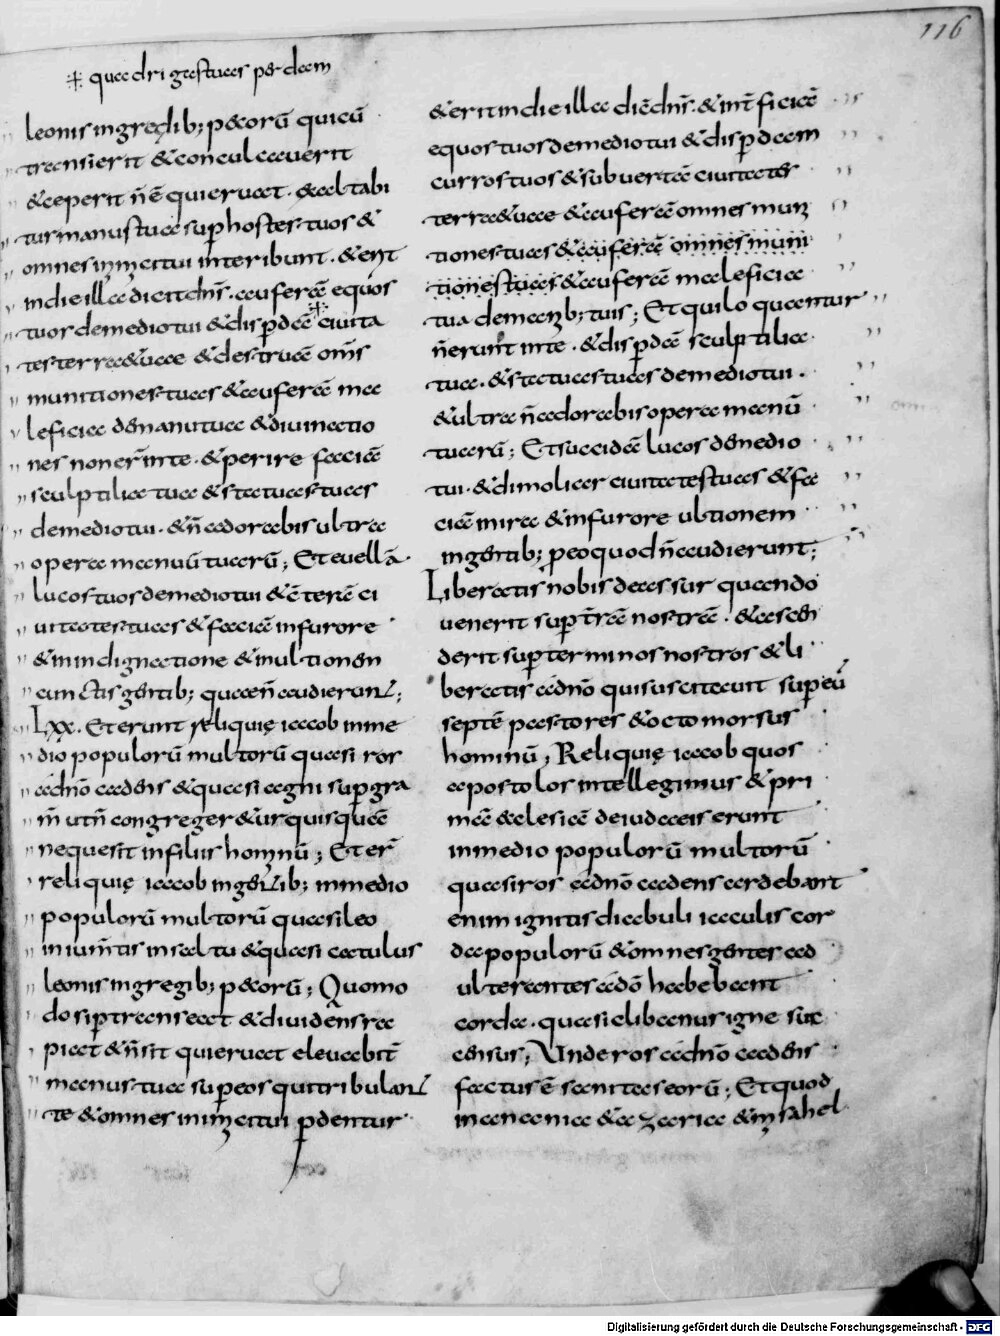 116
quadrigas tuas perdam
leonis in gregib; pecorū qui cū
transierit & conculcaverit
& ceperit ñ ē qui eruat. exaltabi
tur manus tua sup hostes tuos &
omnes inimici tui interibunt. & erit
in die illa dicit dn̄s. auferā equos
tuos de medio tui & disperdā civita
tes terrae tuae & destruā om̄s
munitiones tuas & auferā ma
leficia de manu tua & divinatio
nes non er̄ in te. & perire faciā
sculptilia tua & statuas tuas
de medio tui. & ñ adorabis ultra
opera manuū tuarū; Et evellā
lucos tuos de medio tui & cōterā ci
vitates tuas & faciā in furore
& in indignatione & in ultionem
cunctis gentib; quae ñ audierunt;
LXX. Et erunt reliquię iacob in me
dio populorū multorū quasi ros
a dn̄o cadens & quasi agni sup gra
m̄ ut ñ congregetur quisquā
neque sit in filiis hominū; Et er̄
reliquię iacob in gentib; in medio
populorū multorū quasi leo
in ium̄tis in saltu & quasi catulus
leonis in gregib; pecorū; Quomo
do si p transeat & dividens ra
piat & ñ sit qui eruat elevabit̄
manus tua sup eos qui tribulant
te & omnes inimici tui pdentur
& erit in die illa dic̄ dn̄s. & int̄ficiā
equos tuos de medio tui & disperdam
curros tuos & subvertā civitates
terrae tuae & auferā omnes muni
tiones tuas & auferā omnes muni
tiones tuas & auferā maleficia
tua de manib; tuis; Et qui loquantur
ñ erunt in te. & disperdā sculptilia
tua. & statuas tuas de medio tui.
& ultra ñ adorabis opera manū
tuarū; Et succidā lucos de medio
tui. & dimoliar civitates tuas & fa
ciā in ira & in furore ultionem
in gentib; p eo quod ñ audierunt;
Liberatis nobis de assur quando
venerit sup t̄rā nostrā. & ascen
derit sup terminos nostros & li
beratis a dn̄o qui suscitavit sup eū
septē pastores & octo morsus
hominū; Reliquię iacob quos
apostolos intellegimus & pri
mā aeclesiā de iudaeis erunt
in medio populorū multorū
quasi ros a dn̄o cadens ardebant
enim ignitis diabuli iaculis cor
da populorū & omnes gentes ad
ulterantes a dō habebant
corda. quasi clibanus igne suc
census; Unde ros a dn̄o cadens
factus ē sanitas eorū; Et quod
in ananiae & azariae & misahel